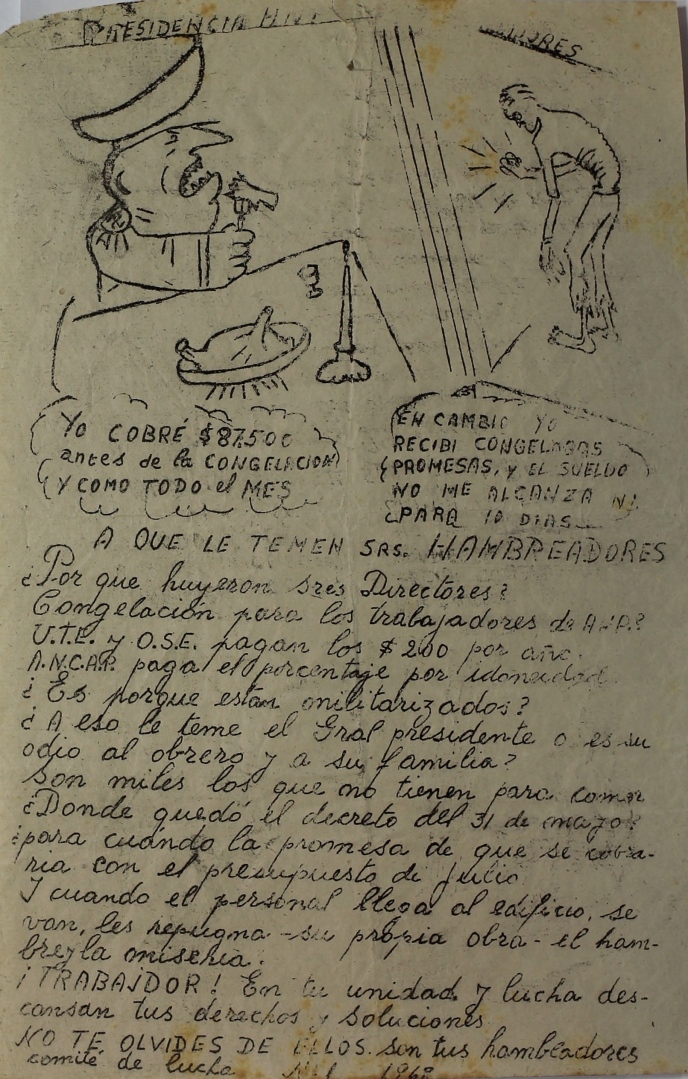 PRESIDENCIA
YO COBRÉ $87.500
antes de la CONGELACION
Y COMO TODO el MES
EN CAMBIO YO
RECIBI CONGELADAS
PROMESAS, y EL SUELDO
NO ME ALCANZA NI
PARA 10 DIAS
A QUE LE TEMEN SRS. HAMBREADORES
¿Por que huyeron sres Directores?
Congelación para los trabajadores de
U.T.E. y O.S.E. pagan los $200 por año.
A.N.C.A.P. paga el porcentaje por idoneidad
¿Es porque estan militarizados?
¿A eso le teme el Gral presidente o es su
odio al obrero y a su familia?
Son miles los que no tienen para comer
¿Donde quedó el decreto del 31 de mayo?
¿para cuándo la promesa de que se cobra-
ria con el presupuesto de Julio
Y cuando el personal llega al edificio, se
van, les repugna - su propia obra - el ham-
bre y la miseria.
¡TRABAJDOR! En tu unidad y lucha des-
cansan tus derechos y soluciones
NO TE OLVIDES DE ELLOS. Son tus hambeadores
comité de lucha 1968